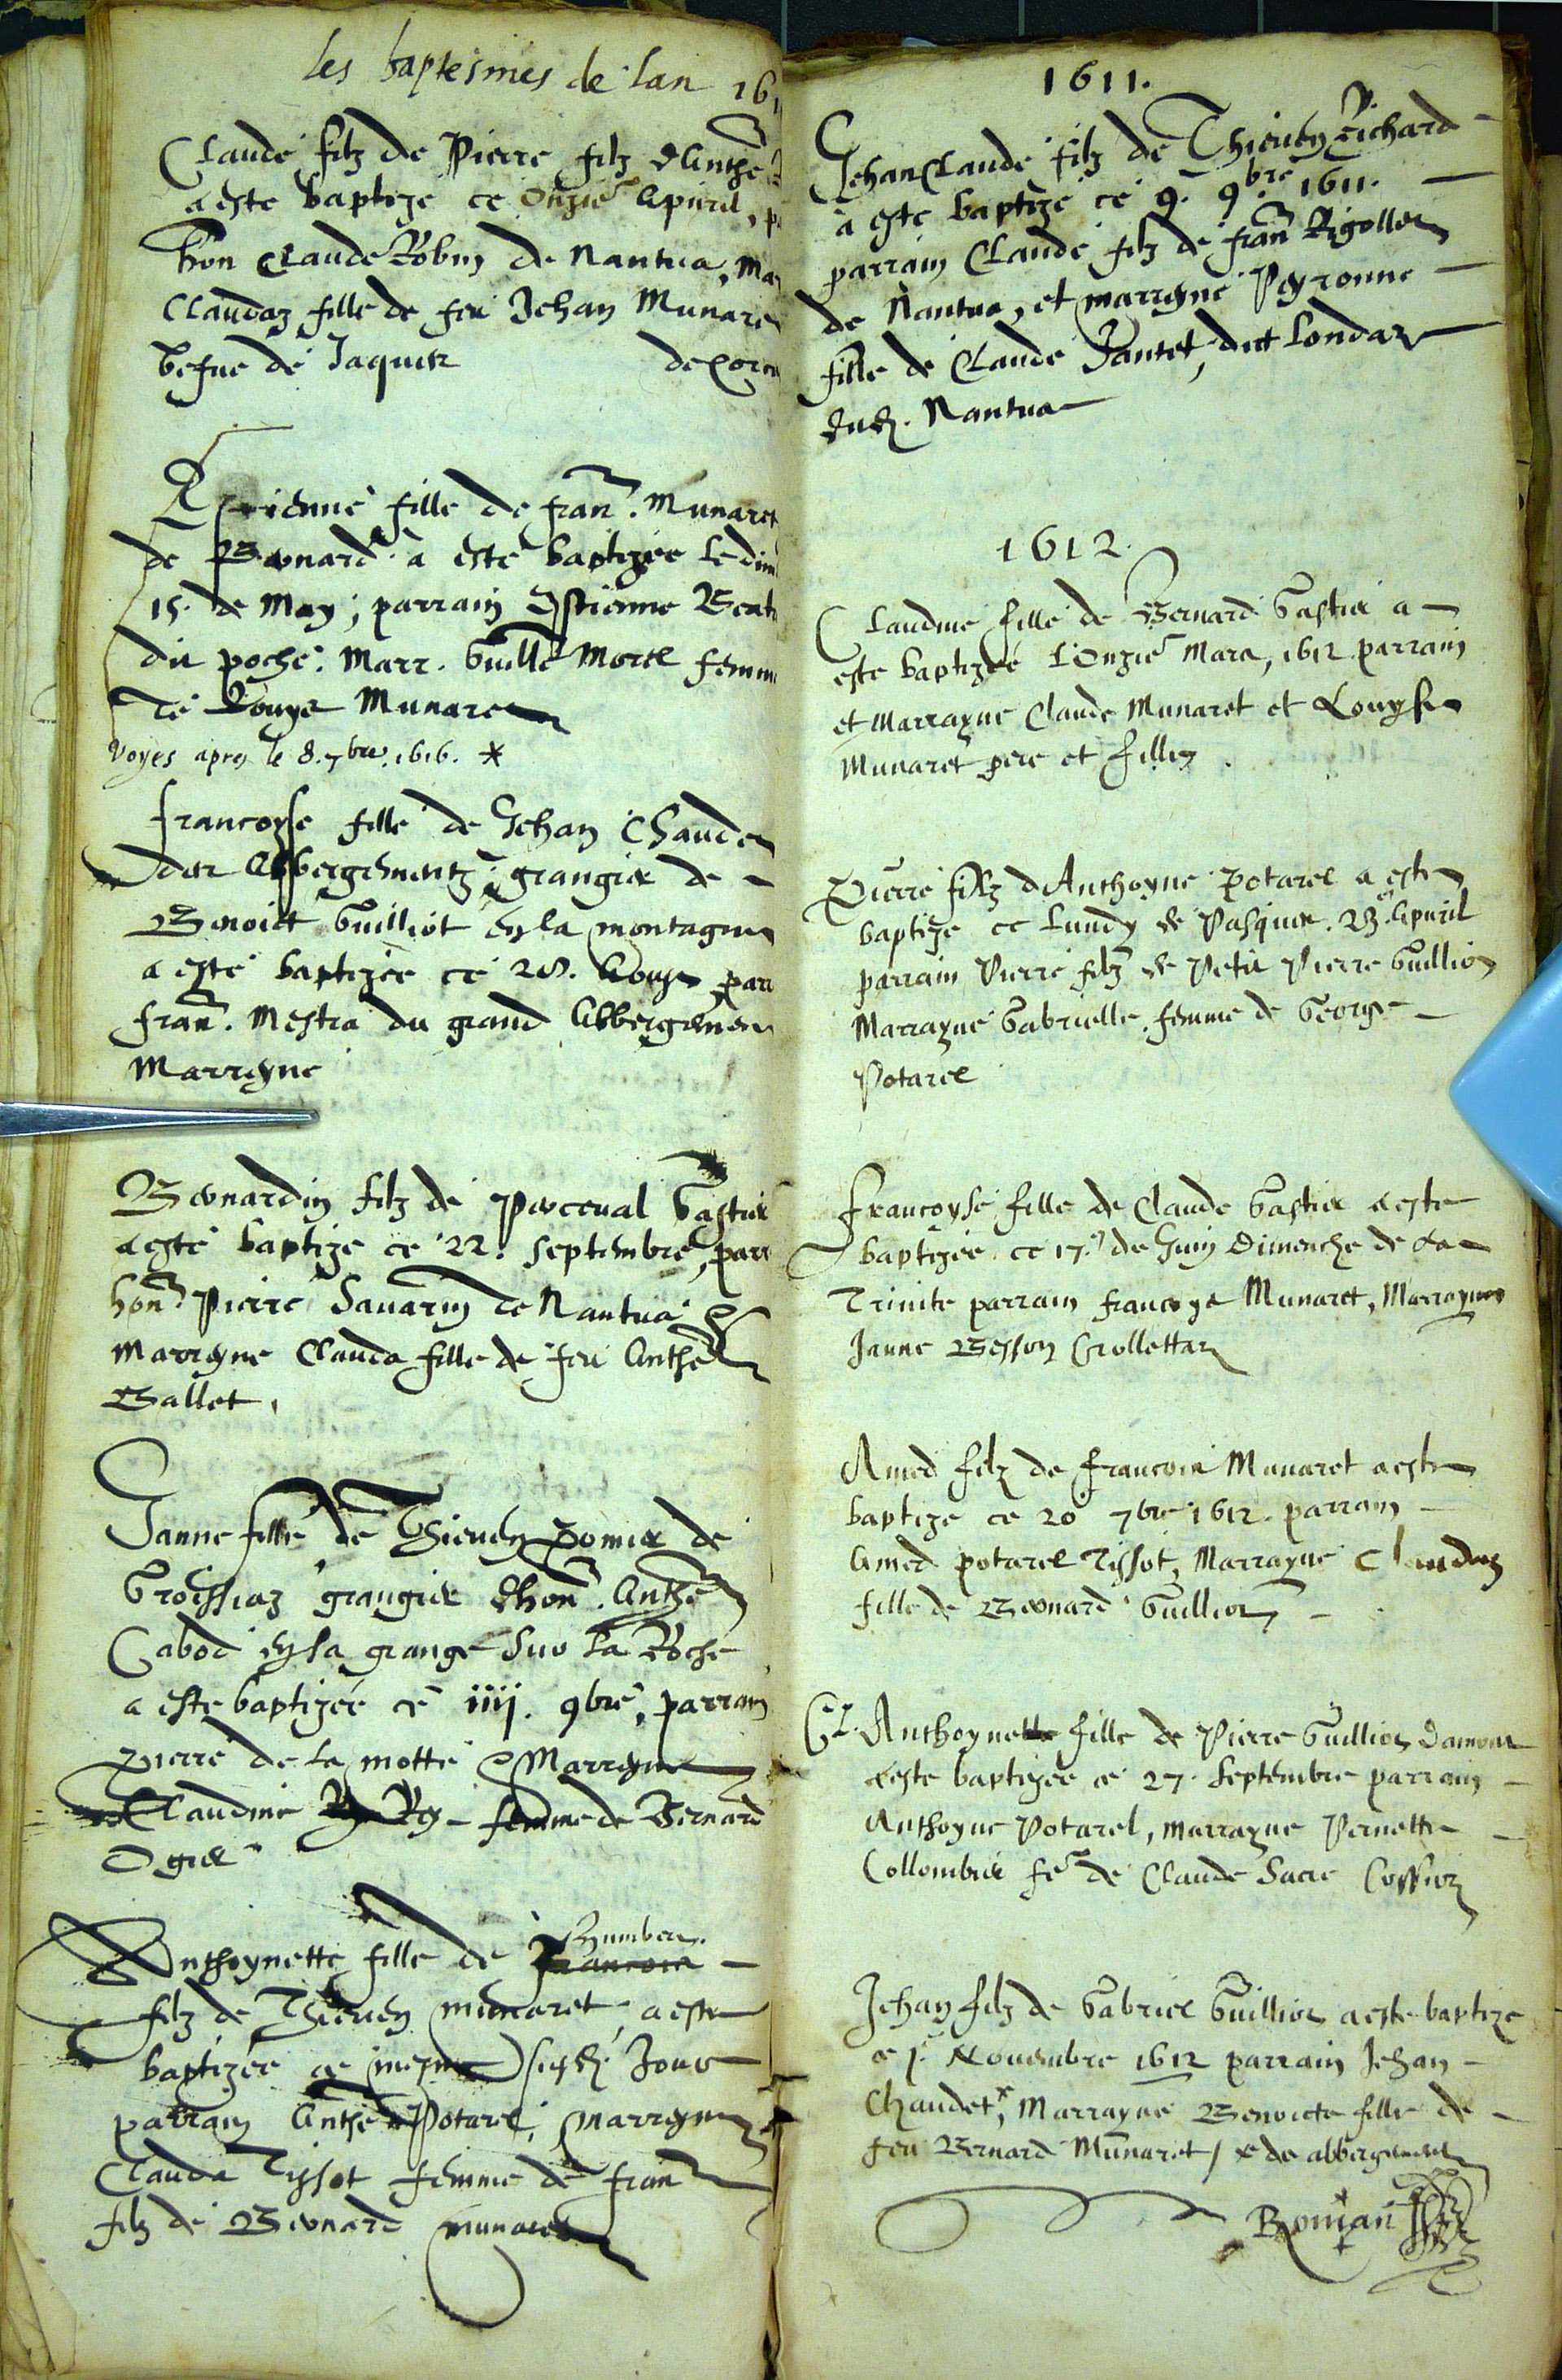 les baptesmes de lan 161
Claude filz de Pierre filz d'Anthe
a este baptizé ce onzie Apuril, p
hon Claude Robin de Nantua, Ma
Claudaz fille de feu Jehan Munare
vefue de Jaques de
fille de fran. Munaret
de Bernard a esté baptizée le dim
15. de May, parrain Estienne
dit poche. Marr. Guille Morel femm
de Louys Munaret
Voyes apres le 8. 7bre. 1616. *
Francoyse fille de Jehan Chaudet
des Abbergementz grangier de
Benoict Guilliot en la montagne
a esté baptizée ce 28. Aoust parr
fran. Mestra du grand Abbergement
Marreyne
Bernardin filz de Perceual Gastier
a esté baptizé ce 22. Septembre, parr
hon. Pierre Sauarin de Nantua &
Marreyne Clauda fille de feu Anthe
Ballet.
Janne fille de Thieuen Pomier de
Groissiaz grangier d'hon. Anthe
Cabod en la grange sur la Roche
a este baptizée ce iiij. 9bre, parrain
Pierre de la motte & Marreyne
Claudine Rey femme de Bernard
Ogier
Humbert
Anthoynette fille de Francois
filz de Thieuen munaret, a este
baptizée ce mesme susd. Jour
parrain Anthe Potarel, Marreyne
Clauda Tissot femme de fran
filz de Bernard munaret
1611.
Jehan Claude filz de Thieuen Richard
a este baptizé ce 9. 9bre 1611.
parrain Claude filz de fran Rigollet
de Nantua, et marreyne Peyronne
fille de Claude Jantet, dict Londaz
dud. Nantua
1612.
Claudine fille de Bernard Gastier a
este baptizée l'Onzie Mars, 1612 parrain
et Marrayne Claude Munaret et Louyse
Munaret pere et filles
Pierre filz d'Anthoyne Potarel a este
baptizé ce Lundy de Pasques. 23. Apuril
parrain Pierre filz de Petit Pierre Guilliot
Marrayne Gabrielle femme de George
Potarel
Francoyse fille de Claude Gastier a este
baptizée ce 17.e de Juin Dimenche de La
Trinite parrain francoys Munaret, Marrayne
Janne Besson Crollettaz
Amed filz de francois Munaret a este
baptize ce 20 7bre 1612. parrain
Amed potarel Tissot, Marrayne Claudaz
fille de Bernard Guilliot
Cl. Anthoynette fille de Pierre Guilliot Damour
a este baptizée ce 27. Septembre parrain
Anthoyne Potarel, marrayne Pernette
Collombier fe de Claude Sacre Cossier
Jehan filz de Gabriel Guilliot a este baptize
ce j. Nouembre 1612 parrain Jehan
Chaudet x, Marrayne Benoicte fille de
feu Bernard Munaret / x de abbergement
Roman